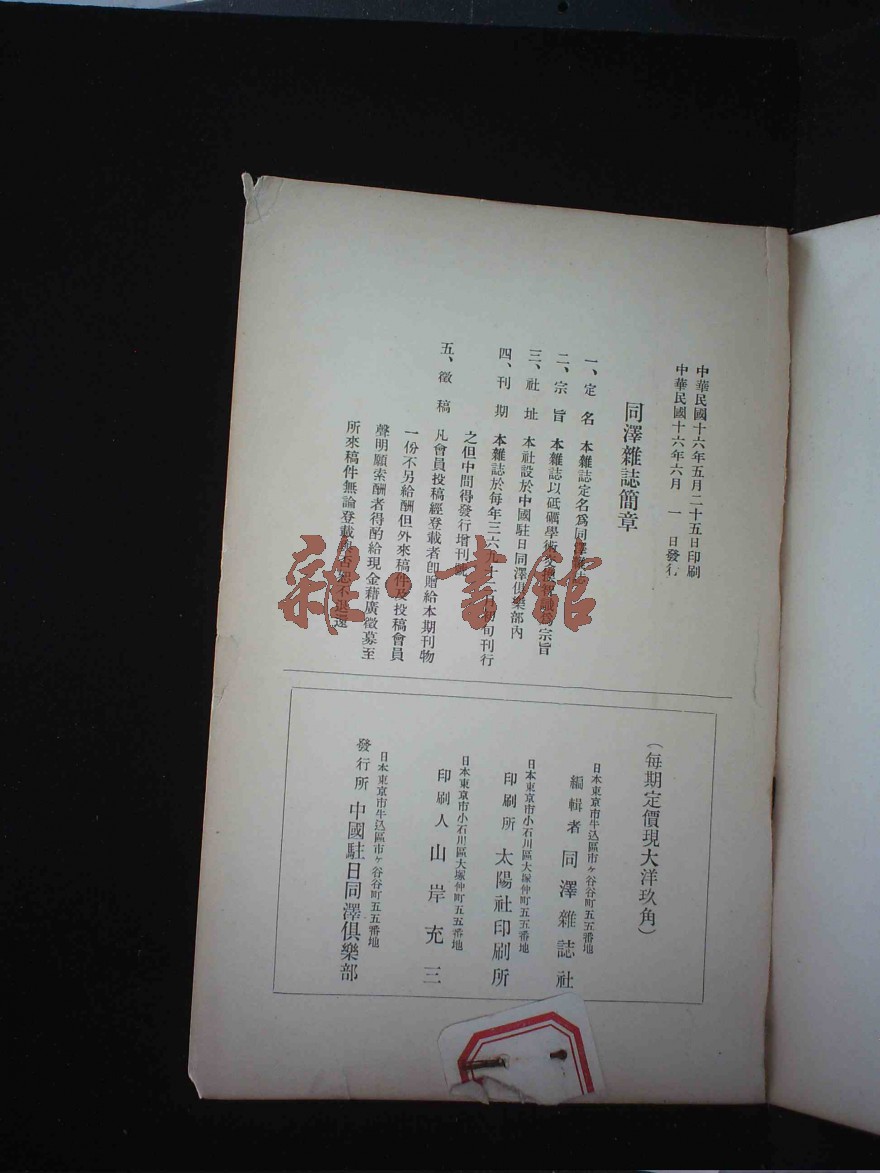 中華民國十六年五月二十五日印刷
中華民國十六年六月一日發行
同澤雜誌簡章
一、定名 本雜誌定名爲同澤雜誌
二、宗旨 本雜誌以砥礪學術交換智識爲宗旨
三、社址 本社設於中國駐日同澤俱樂部內
四、刊期 本雜誌於每年三六九十二月初旬刊行
之但中間得發行增刊號
五、徵稿 凡會員投稿經登載者卽贈給本期刊物
一份不另給酬但外來稿件及投稿會員
聲明願索酬者得酌給現金藉廣徵募至
所來稿件無論登載與否恕不退還
(每期定價現大洋玖角)
日本東京市牛込區市ヶ谷谷町五五番地
編輯者 同澤雜誌社
日本東京市小石川區大塚仲町五五番地
印刷所 太陽社印刷所
日本東京市小石川區大塚仲町五五番地
印刷人 山岸充三
日本東京市牛込區市ヶ谷谷町五五番地
發行所 中國駐日同澤俱樂部
雜·書館